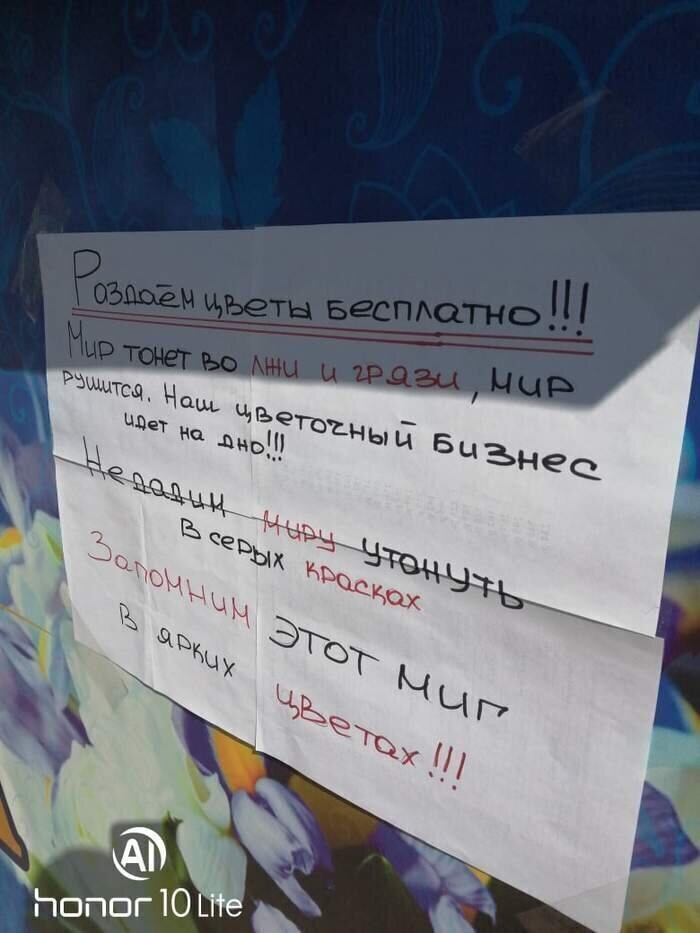 Раздаём цветы бесплатно!!!
Мир тонет во лжи и грязи, мир
рушится. Наш цветочный бизнес
идет на дно!!!
Не дадим миру утонуть
в серых красках
Запомним этот миг
в ярких цветах!!!
AI
honor 10 Lite